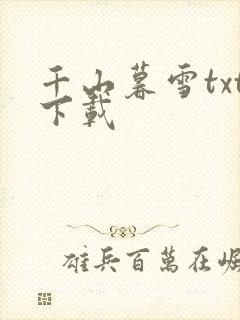 千山暮雪txt
下載
雄兵百萬在崛